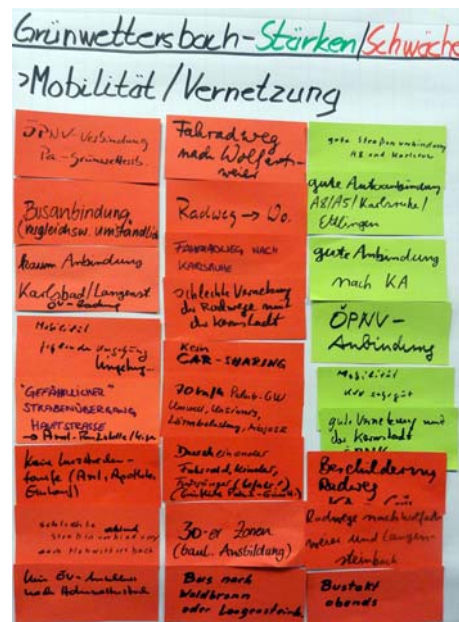 Grünwettersbach-Stärken/Schwäche
>Mobilität/Vernetzung
ÖPNV-Verbindung
Pa-Grünwettersb.
Busanbindung
(vergleichsw. umständlich)
kaum Anbindung
Karlsbad/Langenst
Mobilität
fehlende Umgehung
"GEFÄHRLICHER"
STRAßENÜBERGANG
HAUPTSTRASSE
Keine
(Arzt, Apotheke,
Einkauf)
schlechte
nach Hohenwettersbach
Kein ÖV-Anschluss
nach Hohenwettersbach
Fahrradweg
nach Wolfarts-
weier
Radweg → Wo.
FAHRRADWEG NACH
KARLSRUHE
schlechte Vernetzung
der Radwege mit
der Kernstadt
Kein
CAR-SHARING
Lärmbelastung,
Durcheinander
Fahrrad, Kinder,
Fußgänger
30-er Zonen
(baul. Ausbildung)
Bus nach
Waldbronn
oder Langensteinb
gute Straßenanbindung
A8 und Karlsruhe
gute Autoanbindung
A8/A5/Karlsruhe/
Ettlingen
gute Anbindung
nach KA
ÖPNV-
Anbindung
Mobilität
gute Vernetzung mit
der Kernstadt
Beschilderung
Radweg
Radwege nach Wolfarts-
weier und Langen-
steinbach
Bustakt
abends